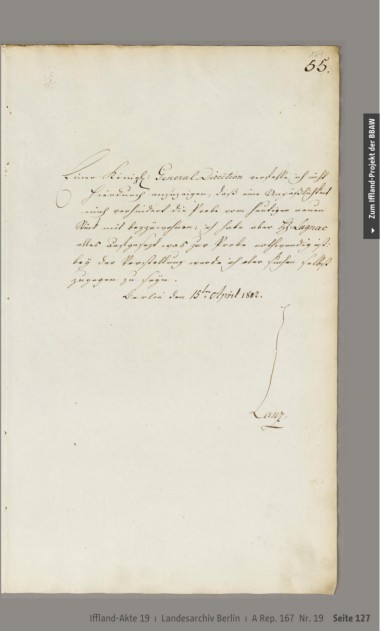 55.
Einer Königl: General-Direction verfehle ich nicht
hierdurch anzuzeigen, daß eine Unpäßlichkeit
mich verhindert die Probe vom heutigen neuen
Stück mit beyzuwohnen; ich habe aber H: Lagnac
alles was zur Probe nothwendig ist.
bey der Vorstellung werde ich aber selbst
zugegen zu seyn.
Berlin den 15ten April 1812.
Lanz.
▼ Zum Iffland-Projekt der BBAW
Iffland-Akte 19 I Landesarchiv Berlin I A Rep. 167 Nr. 19 Seite 127